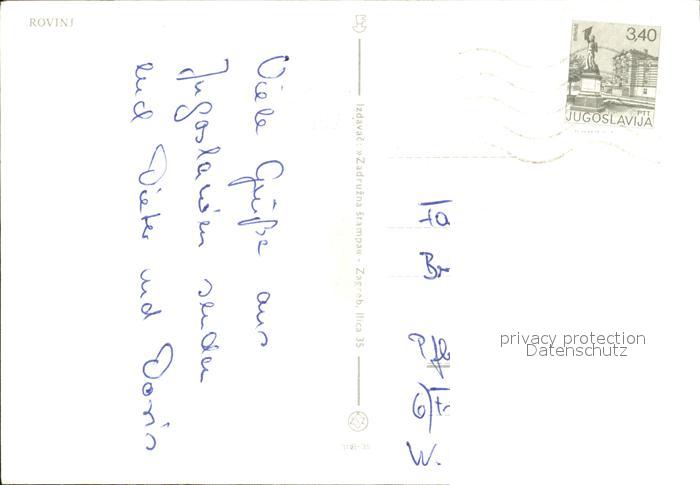 ROVINJ
Viele Grüße aus
Jugoslavien senden
euch Dieter und Doris
Izdavač: »Zadružna štampa« - Zagreb, Ilica 35
3,40
PTT
JUGOSLAVIJA
W.
privacy protection
Datenschutz